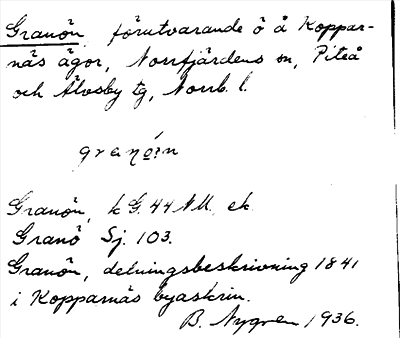 Granön förutvarande ö å Koppar-
näs ägor, Norrfjärdens sn, Piteå
och Älvsby tg, Norrb. l.
Granön, k G. 44 NM. ek.
Granö Sj. 103.
Granön, delningsbeskrivning 1841
i Kopparnäs byaskrin.
B. Nygren 1936.